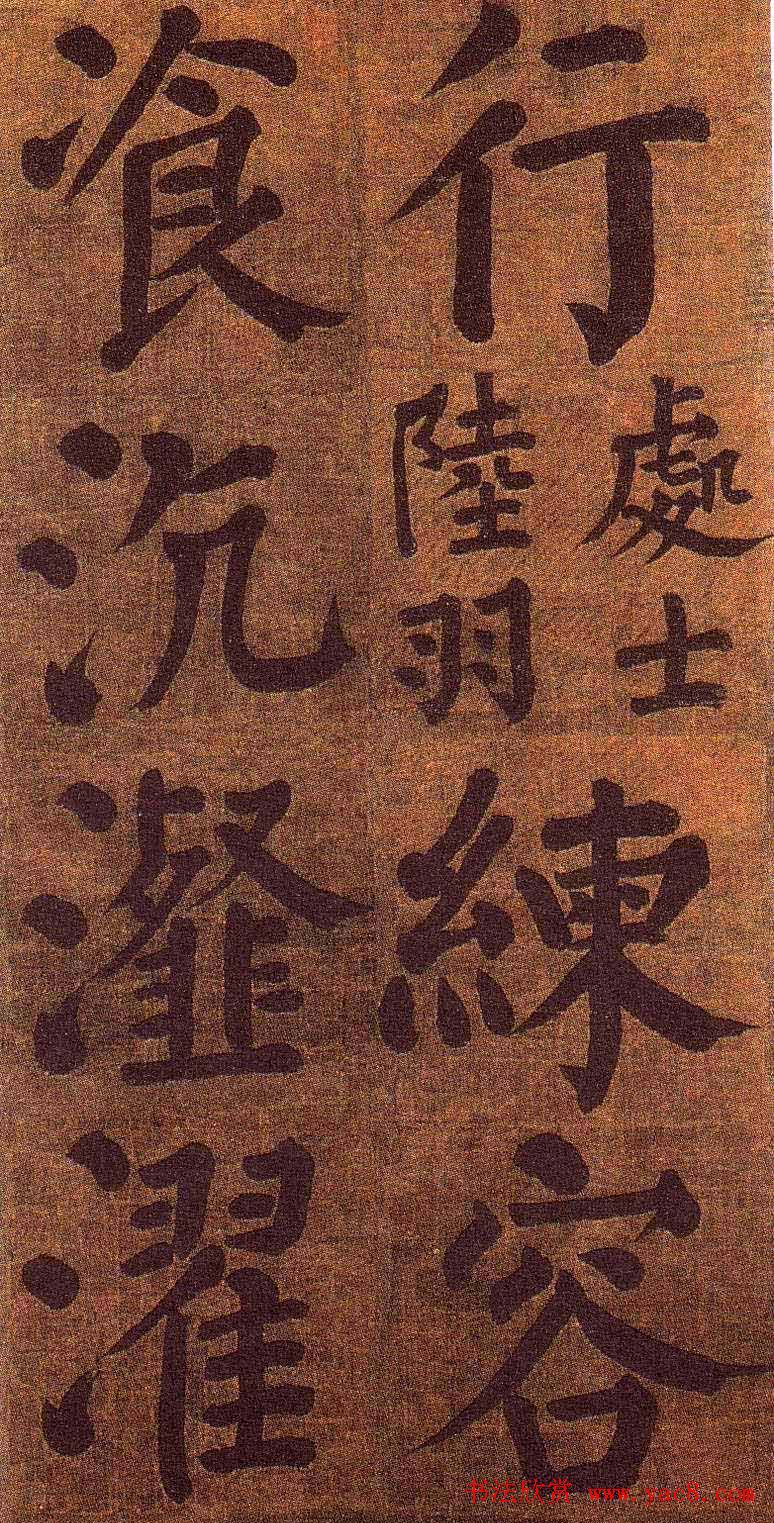 行處士陸羽練容
飡沆瀣濯
书法欣赏 www.yac8.com